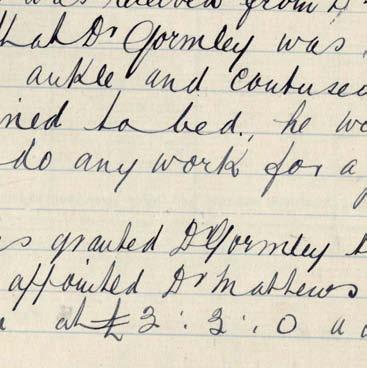 was received from D
that Dr Gormley was
ankle and contused
ned to bed., he wo
do any work for a
s granted Dr Gormley
appointed Dr Mathews
at £3:3:0 a